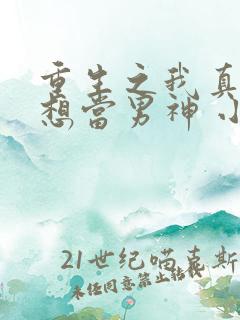 重生之我真
想当男神 小
21世纪喵克斯
未经同意禁止转载